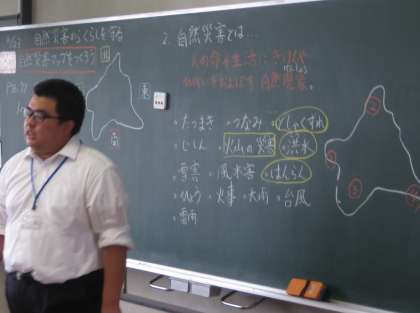 自然災害からくらしを守る
自然災害マップをつくろう
北
東
南
2. 自然災害とは…
人の命や生活にきけんや
自然現象。
・たつまき ・つなみ ・どしゃくずれ
・じしん ・火山の災害 ・洪水
・雪害 ・風水害 ・はんらん
・ひょう ・火事 ・大雨 ・台風
・雷雨